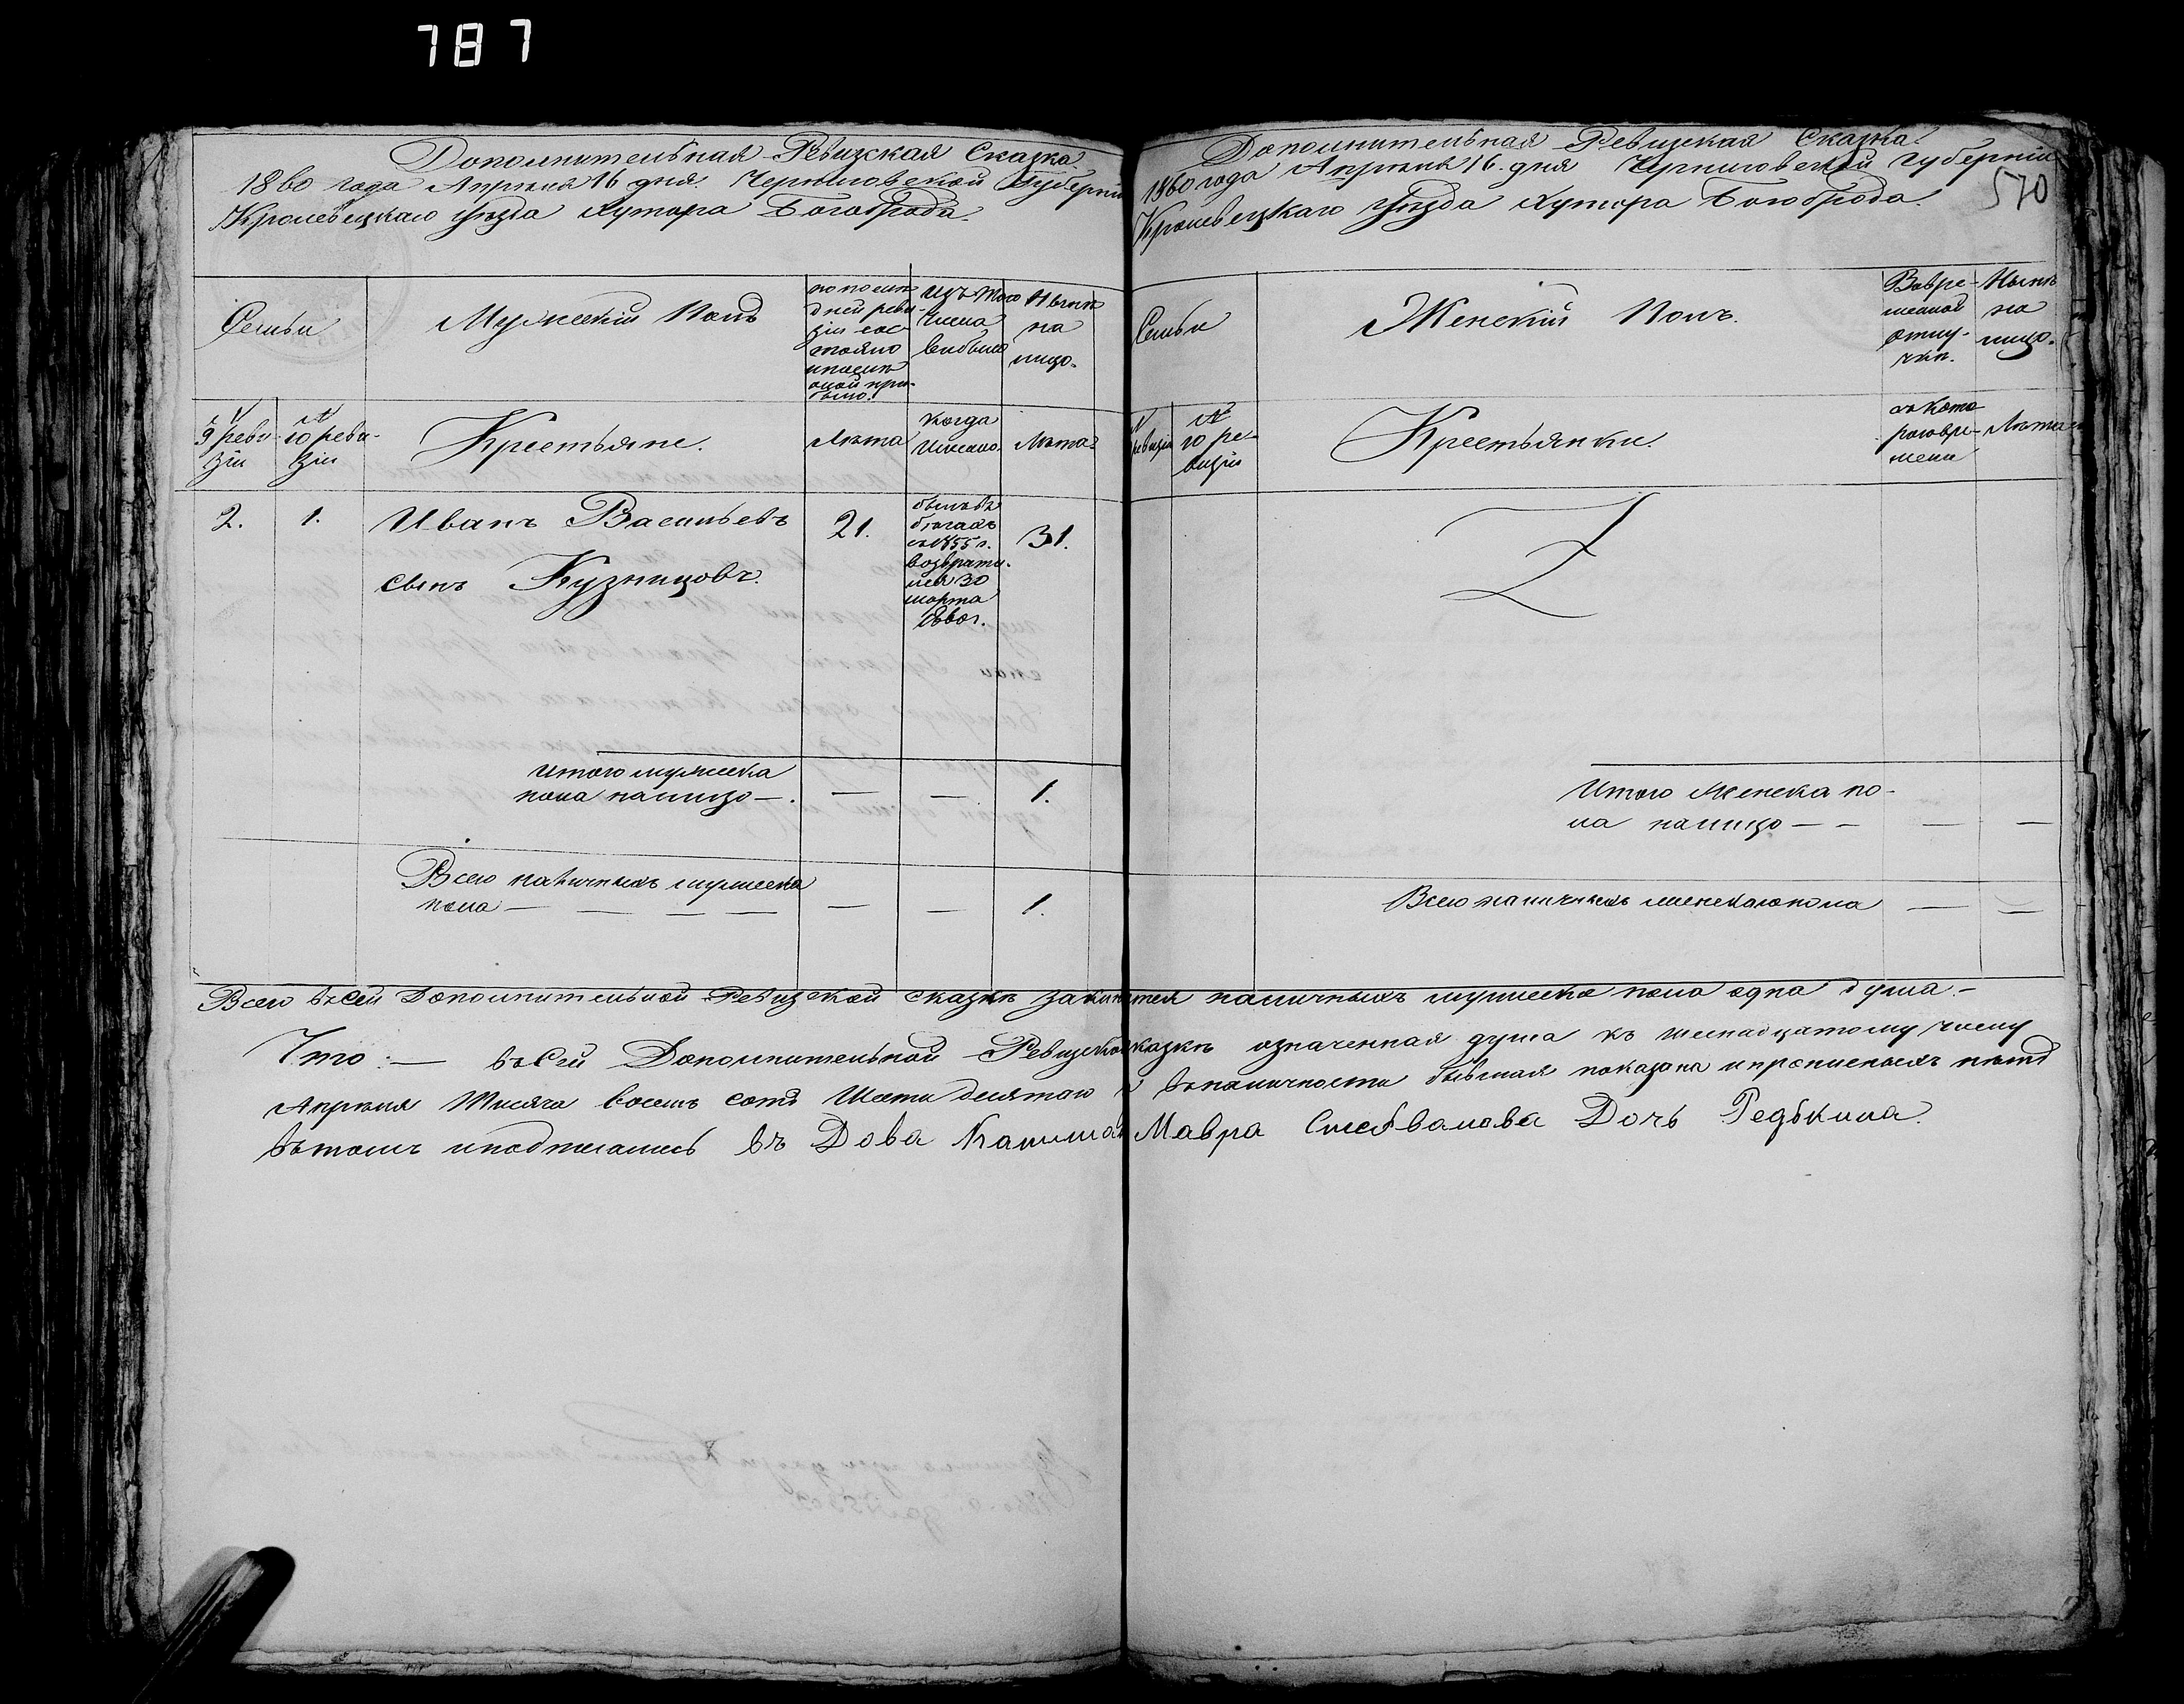 787
Дополнительная Ревизская Сказка
1860 года Апрѣля 16 дня. Черниговской Губерніи
Кролевецкаго уѣзда хутора Богоброда.
Семьи
Мужескій Полъ
по послѣ-
дней реви-
зіи сос-
тояло
и послѣ
оной при-
было.
Изъ того
числа
выбыло
Нынѣ
на
лицо.
№
9 реви-
зіи
№
10 реви-
зіи
Крестьяне.
Лѣта
когда
именно.
Лѣта
2.
1.
Иванъ Васильевъ
сынъ Кузницовъ.
21.
былъ въ
бѣгахъ
съ 1855 г.
возврати-
лся 30
марта
1860 г.
31.
Итого мужеска
пола налицо — . — — 1.
Всего наличныхъ мужеска
пола — — — — — — 1.
Дополнительная Ревизская Сказка
1860 года Апрѣля 16. дня Черниговской губерніи
Кролевецкаго уѣзда хутора Богоброда.
570
Семьи
Женскій Полъ.
Вовре-
менной
отлу-
чкѣ.
Нынѣ
на
лицо.
№
ревизіи
№
10 ре-
визіи
Крестьянки.
съ кото
раго вре-
мени
Лѣта
Итого женска по-
ла налицо — — — —
Всего наличныхъ женскаго пола — —
Всего въ сей Дополнительной Ревизской сказкѣ наличныхъ мужеска пола одна душа. —
Что: — въ Сей Дополнительной Ревизской сказкѣ означенная душа къ шеснадцатому числу
Апрѣля Тисяча восемь сотъ Шести десятого въ наличности бывшая показана и прописныхъ нѣтъ
въ томъ и подписалась въ Дова Мавра Дочь Редькина.